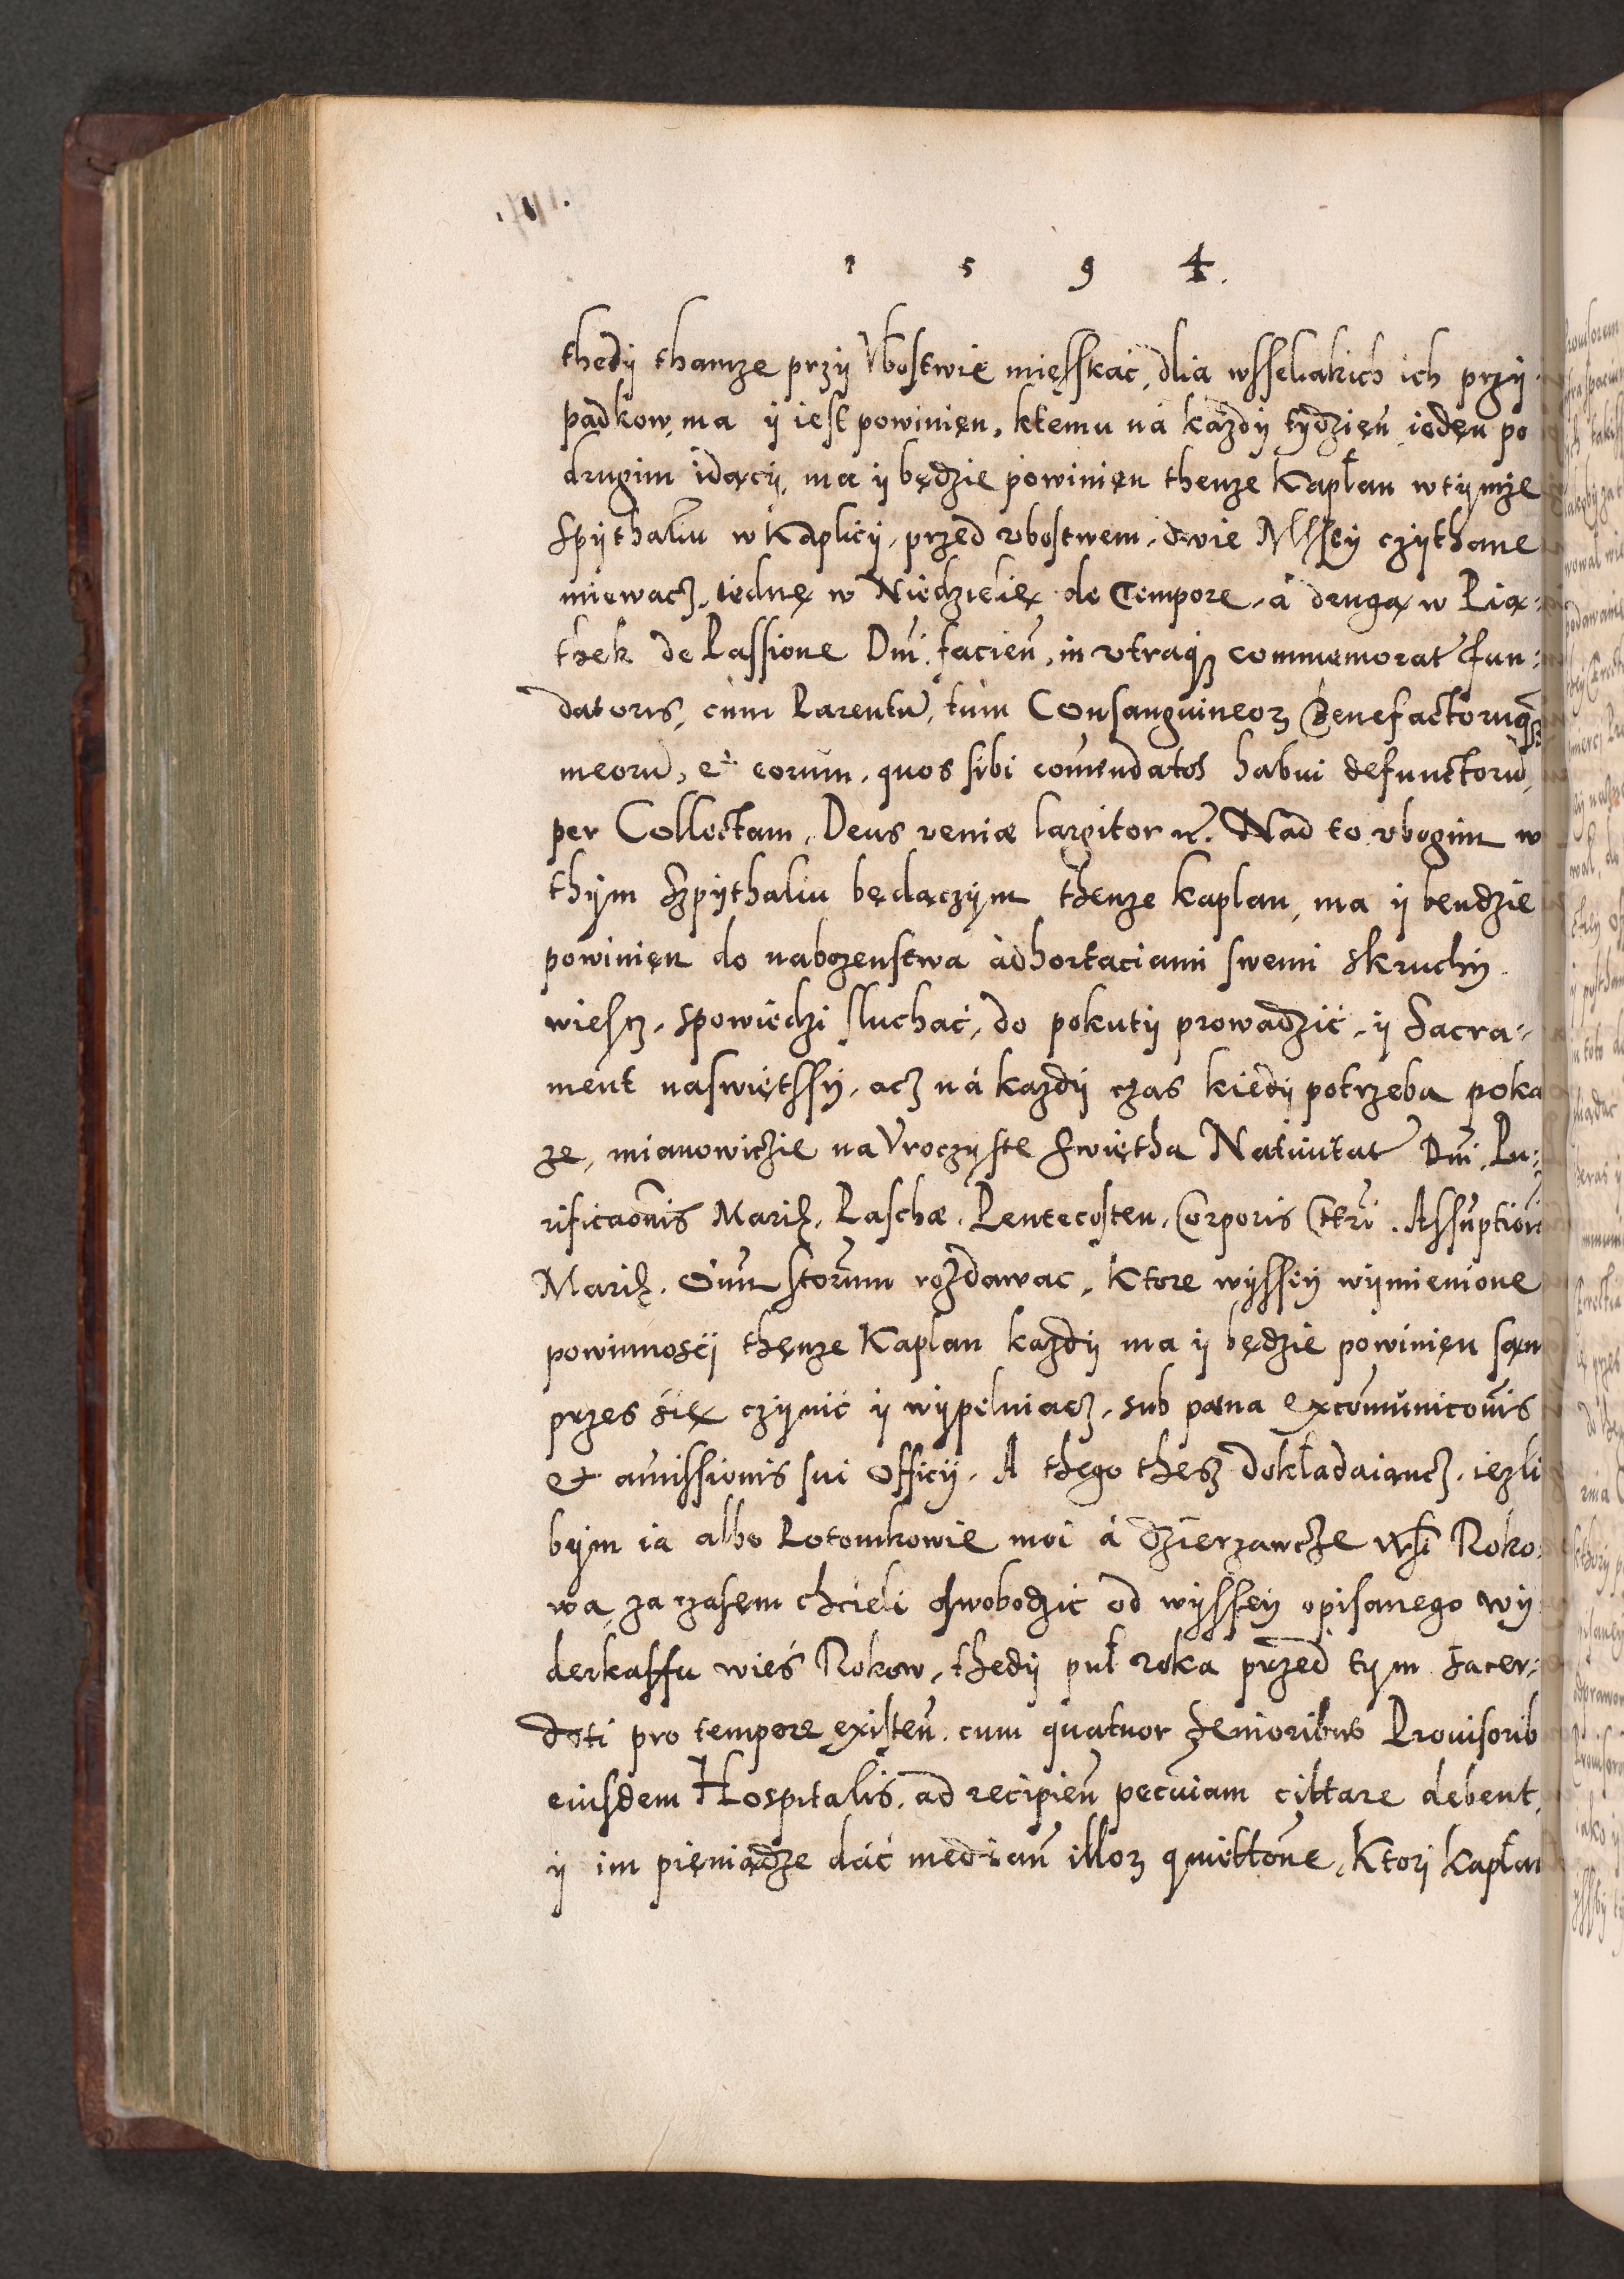 1 5 9 4.
thedÿ thamze przÿ Vbostwie mięsskać, dlia wsseliakich ich przÿ-
padkow, ma ÿ iest powinięn, ktemu ná káżdÿ tÿdzięń iedęn po
drugim idącÿ, ma ÿ będzie powinięn thenze Kapłan wtÿmże
Spÿthaliu w Kaplicÿ, przed vbostwem, dwie Mssÿ czÿthane
miewacz, iednę w Niedzielię de Tempore, á drugą w Pią-
thek de Passione Dni, facień, in vtraqȝ commemorat Fun-
datoris, cum Parentũ, tum Consanguineoȝ Benefactoruqȝ
meorũ, et eorum, quos sibi com̃endatos habui defunctorũ,
per Collectam, Deus veniæ largitor ꝛc. Nad to vbogim w
thÿm Szpÿthaliu będączÿm thenze kaplan, ma ÿ bendzie
powinięn do nabozenstwa ádhortaciami swemi skruchÿ
wiesz, spowiedzi sluchać, do pokutÿ prowadzić, ÿ Sacra-
ment naswiętssÿ, acz ná kazdÿ czas kiedÿ potrzeba poka
ze, mianowiczie na Vroczÿste Swiętha Natiuitat Dni, Pu-
rificaõnis Mariȩ, Paschæ, Pentecosten, Corporis Chri, Assũption
Mariȩ, Om̃ Storum rozdawac, Ktore wÿssÿ wÿmienione
powinnoscÿ thęnze Kaplan każdÿ ma ÿ będzie powinięn sąm
przes się czÿnić ÿ wÿpelniacz, sub pœna excom̃unicõnis
et amissionis sui Officÿ. A thego thesz dokładaiąncz, iezli
bÿm ia albo Potomkowie moi á dzierzawcze Wsi Roko-
wa, za czasęm chcieli oswobodzic od wÿssey opisanego wÿ-
derkaffu wieś Rokow, thedÿ puł roka przed tym Sacer-
doti pro tempore existeñ cum quatuor Senioribus Prouisorib
eiusdem Hospitalis, ad recipieñ pecuniam cittare debent,
ÿ im pięniądze dáć mediañ illoȝ quittõne, Ktori kapłan